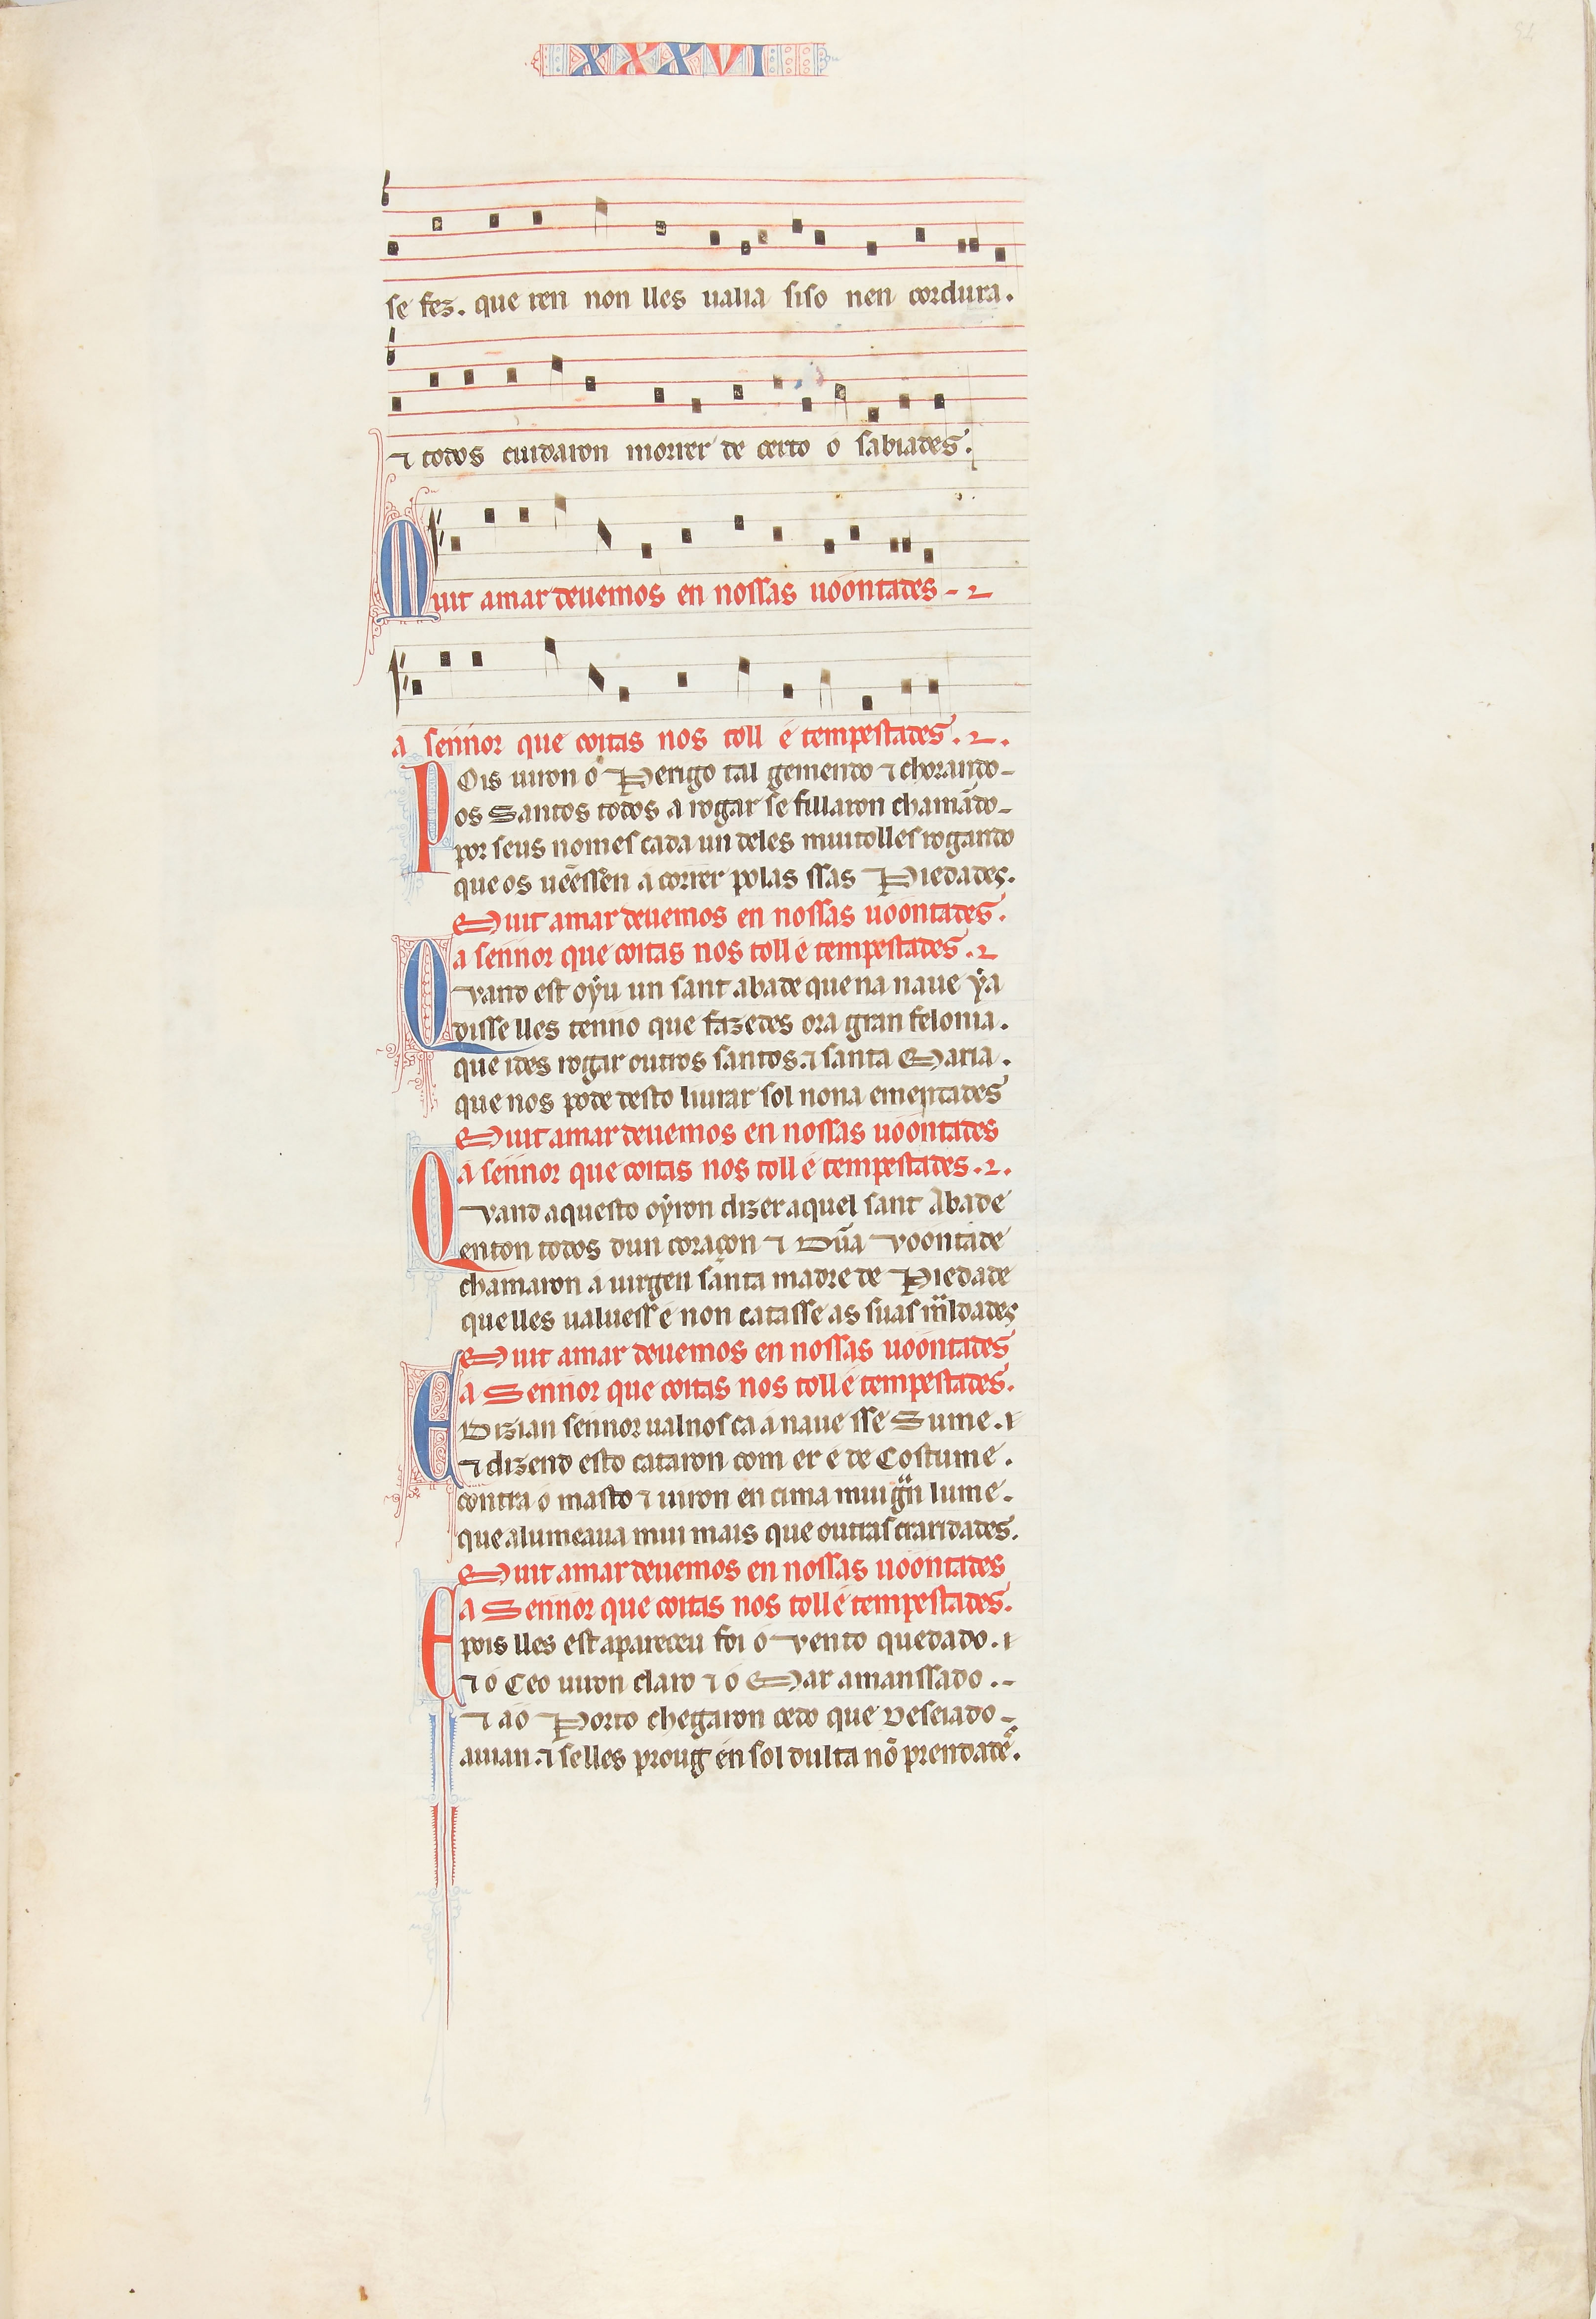 XXXVI
se fez. que ren non lles ualia siso nen cordura.
⁊ todos cuidaron morrer de certo o sabiades.
Muit amar deuemos en nossas uoontades
a sennor que coitas nos toll e tempestades.
Pois uiron o Perigo tal gemendo ⁊ chorando
os Santos todos a rogar se fillaron chamãdo
por seus nomes cada un deles muitolles rogando
que os uẽessen acorrer polas ssas Piedades.
Muit amar deuemos en nossas uoontades.
a sennor que coitas nos toll e tempestades.
Quand est oẏu un sant abade que na naue ẏa
disse lles tenno que fazedes ora gran felonia.
que ides rogar outros santos. ⁊ santa Maria.
que nos pode desto liurar sol nona ementades
Muit amar deuemos en nossas uoontades
a sennor que coitas nos toll e tempestades.
Quand aquesto oẏron dizer aquel sant Abade
enton todos dun coraçon ⁊ Dũa voontade
chamaron a uirgen santa madre de Piedade
que lles ualuess e non catasse as suas mildades
Muit amar deuemos en nossas uoontades
a Sennor que coitas nos toll e tempestades.
E Dizian sennor ualnos ca a naue sse Sume.
⁊ dizend esto cataron com er e de Costume.
contra o masto ⁊ uiron en cima mui gn lume.
que alumeaua mui mais que outras craridades.
Muit amar deuemos en nossas uoontades
a Sennor que coitas nos toll e tempestades.
E pois lles est apareceu foi o vento quedado.
⁊ o Ceo uiron claro ⁊ o Mar amanssado.
⁊ ao Porto chegaron cedo que Deseiado
auian. ⁊ se lles proug en sol dulta nõ prendades.